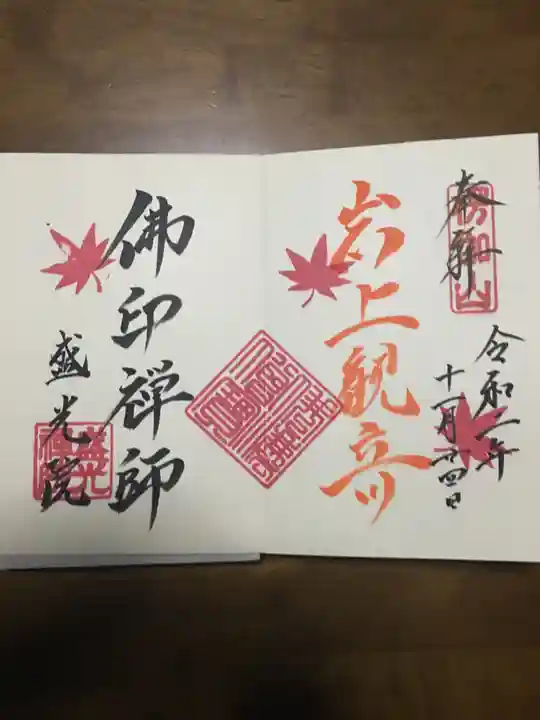 奉拝
令和二年
十一月廿四日
岩上観音
佛印禅師
盛光院